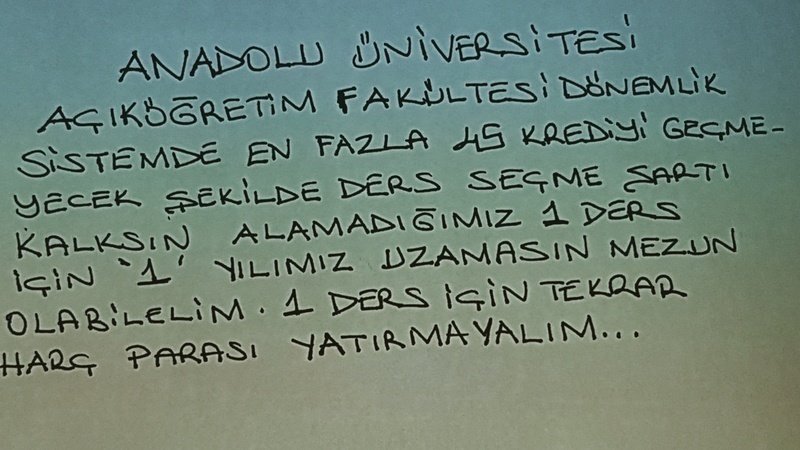 ANADOLU ÜNİVERSİTESİ
AÇIKÖĞRETİM FAKÜLTESİ DÖNEMLİK
SİSTEMDE EN FAZLA 45 KREDİYİ GEÇME-
YECEK ŞEKİLDE DERS SEÇME ŞARTI
KALKSIN ALAMADIĞIMIZ 1 DERS
İÇİN '1' YILIMIZ UZAMASIN MEZUN
OLABİLELİM. 1 DERS İÇİN TEKRAR
HARÇ PARASI YATIRMAYALIM...